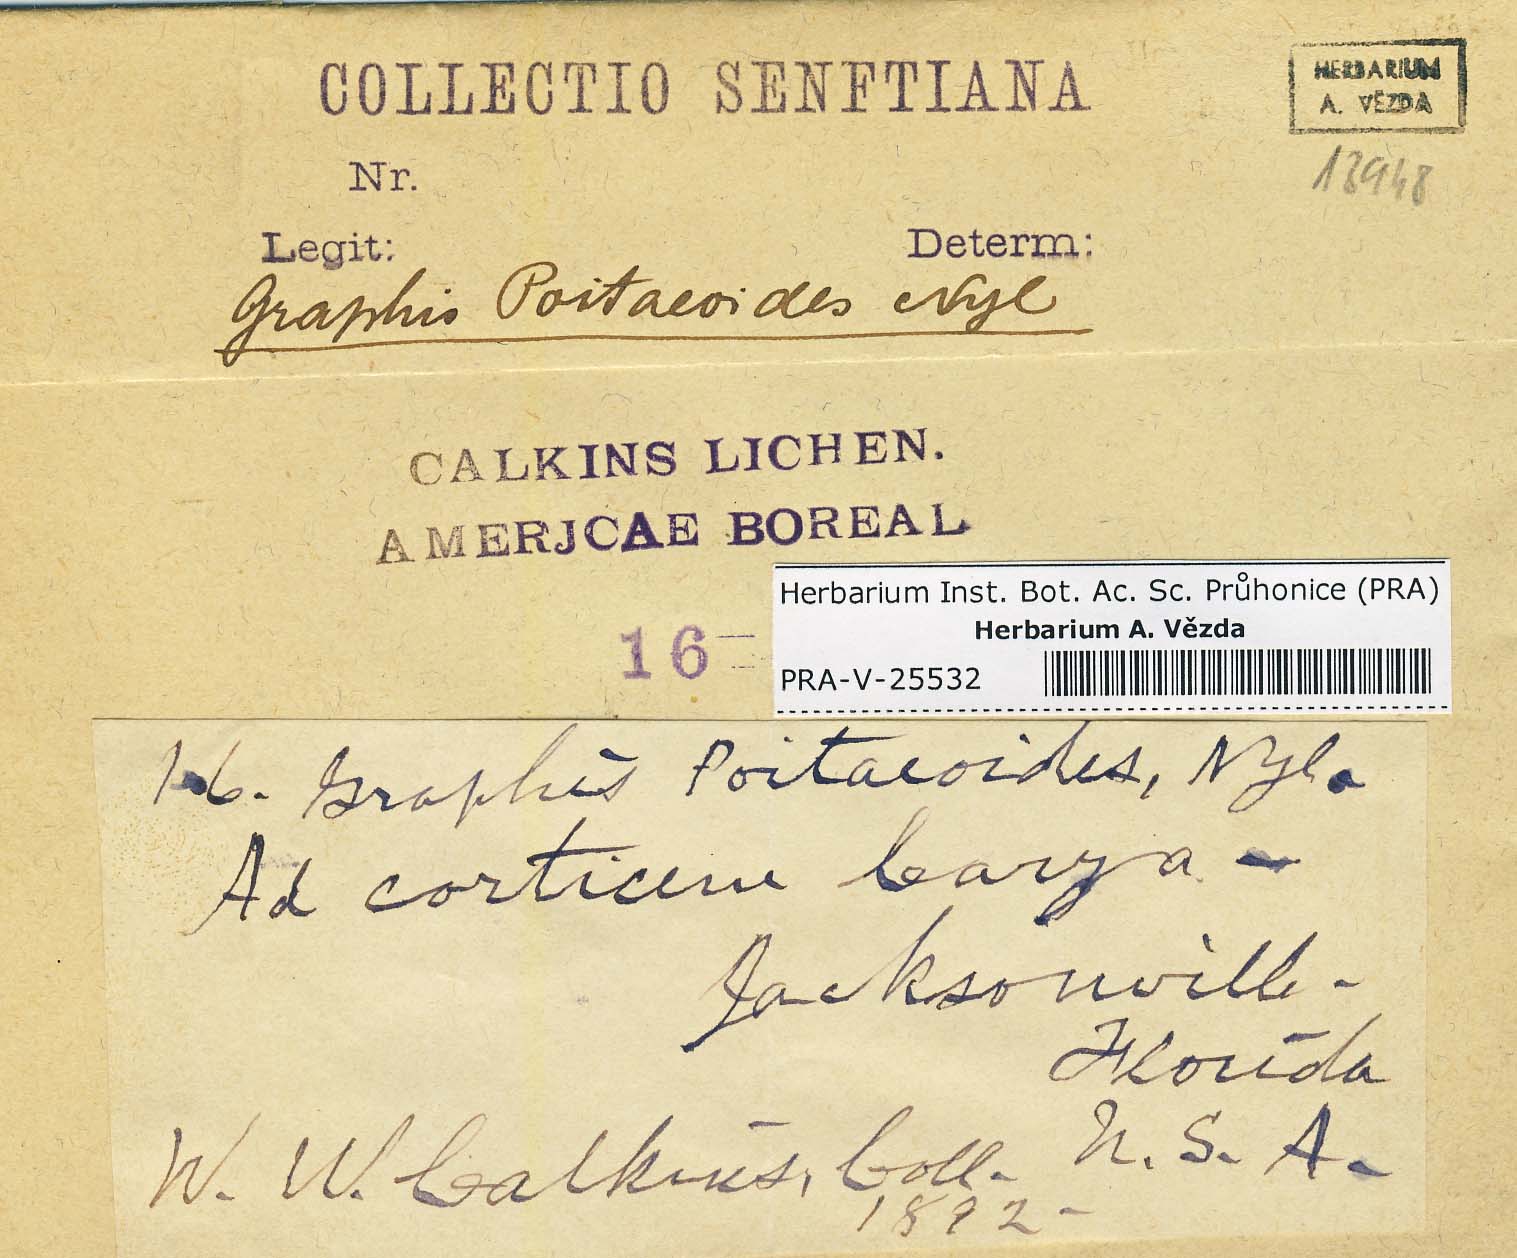 COLLECTIO SENFTIANA
HERBARIUM
A. VĚZDA
13948
Nr.
Legit:
Determ:
Graphis Poitaeoides Nyl
CALKINS LICHEN.
AMERJCAE BOREAL
16
Herbarium Inst. Bot. Ac. Sc. Průhonice (PRA)
Herbarium A. Vězda
PRA-V-25532
16. Graphis Poitaeoides, Nyl.
Ad corticem Carya -
Jacksonville -
Florida
W. W. Calkins, Coll. U. S. A.
1892 -